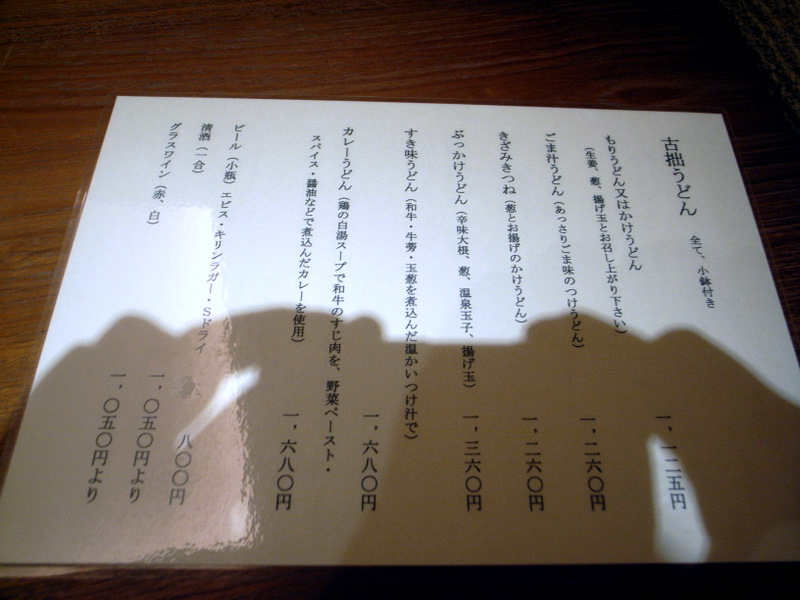 古拙うどん 全て、小鉢付き
もりうどん又はかけうどん 一,一二五円
(生姜、葱、揚げ玉とお召し上がり下さい)
ごま汁うどん(あっさりごま味のつけうどん) 一,二六〇円
きざみきつね(葱とお揚げのかけうどん) 一,二六〇円
ぶっかけうどん(辛味大根、葱、温泉玉子、揚げ玉) 一,三六〇円
すき味うどん(和牛・牛蒡・玉葱を煮込んだ温かいつけ汁で) 一,六八〇円
カレーうどん(鶏の白湯スープで和牛のすじ肉を、野菜ペースト・
スパイス・醤油などで煮込んだカレーを使用) 一,六八〇円
ビール(小瓶)ヱビス・キリンラガー・Sドライ 八〇〇円
清酒(一合) 一,〇五〇円より
グラスワイン(赤、白) 一,〇五〇円より